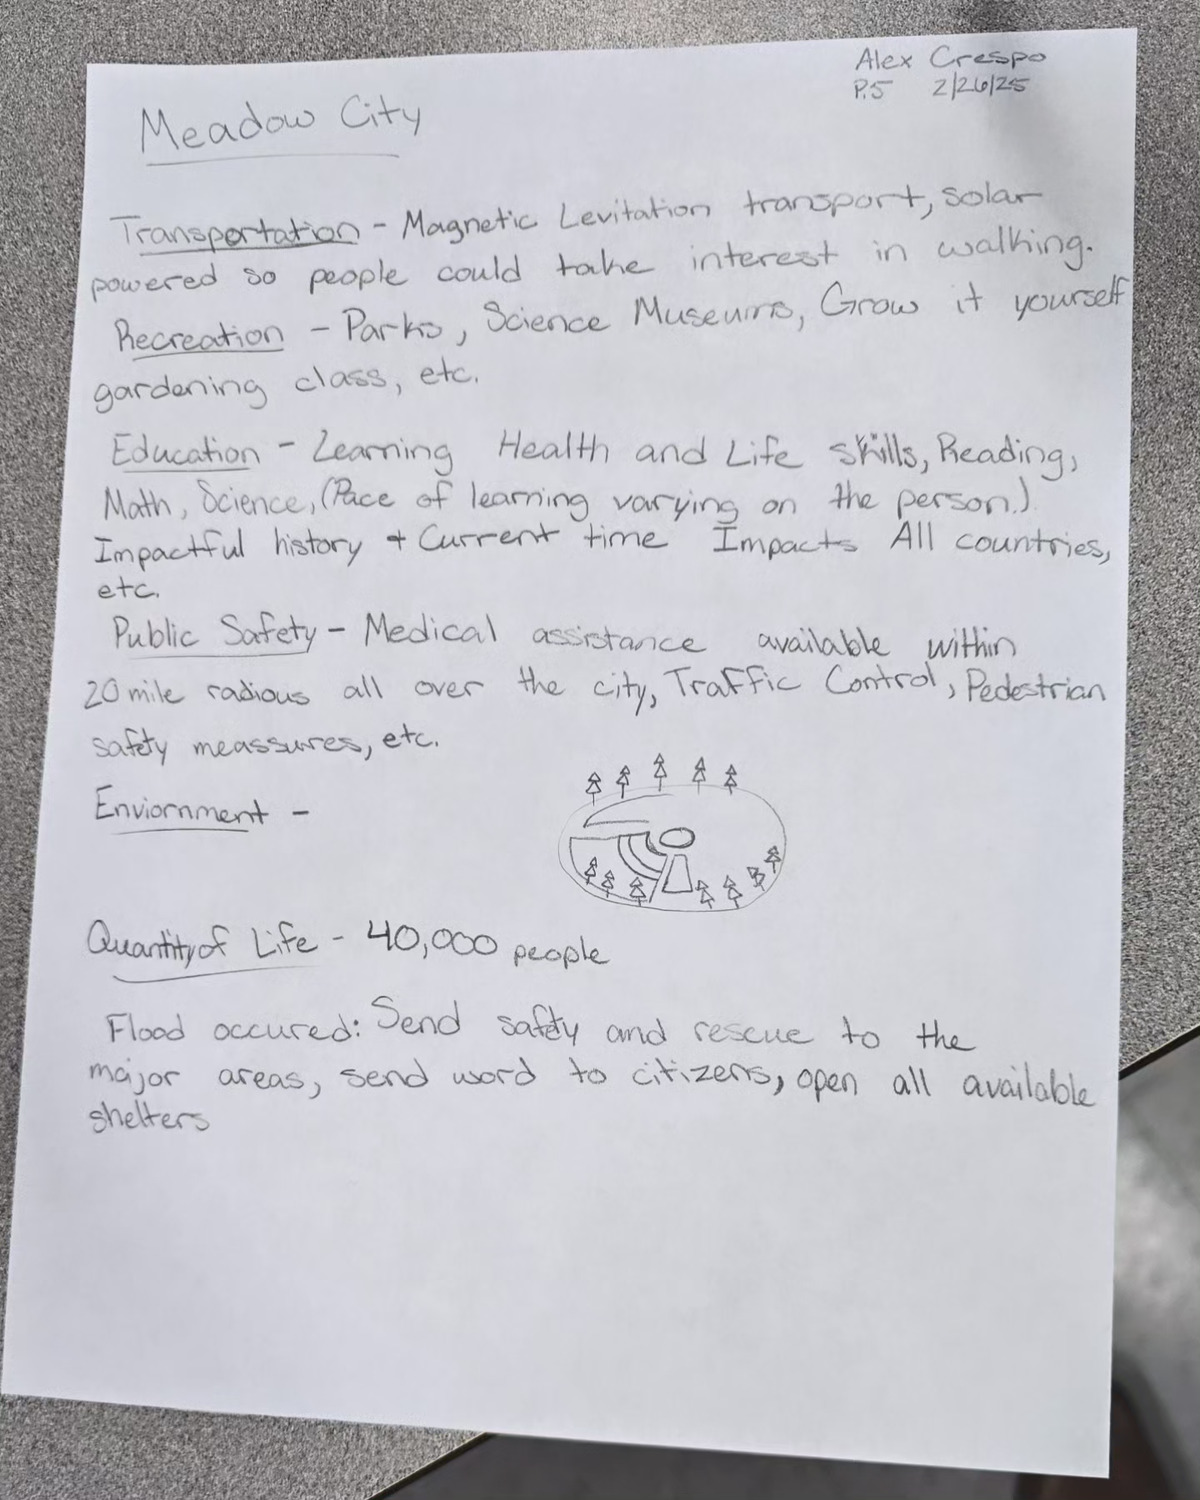 Alex Crespo
P.5 2/26/25
Meadow City
Transportation - Magnetic Levitation transport, solar
powered so people could take interest in walking.
Recreation - Parks, Science Museums, Grow it yourself
gardening class, etc.
Education - Learning Health and Life skills, Reading,
Math, Science, (Pace of learning varying on the person.)
Impactful history + Current time Impacts All countries,
etc.
Public Safety - Medical assistance available within
20 mile radious all over the city, Traffic Control, Pedestrian
safety meassures, etc.
Enviornment -
Quantity of Life - 40,000 people
Flood occured: Send safety and rescue to the
major areas, send word to citizens, open all available
shelters